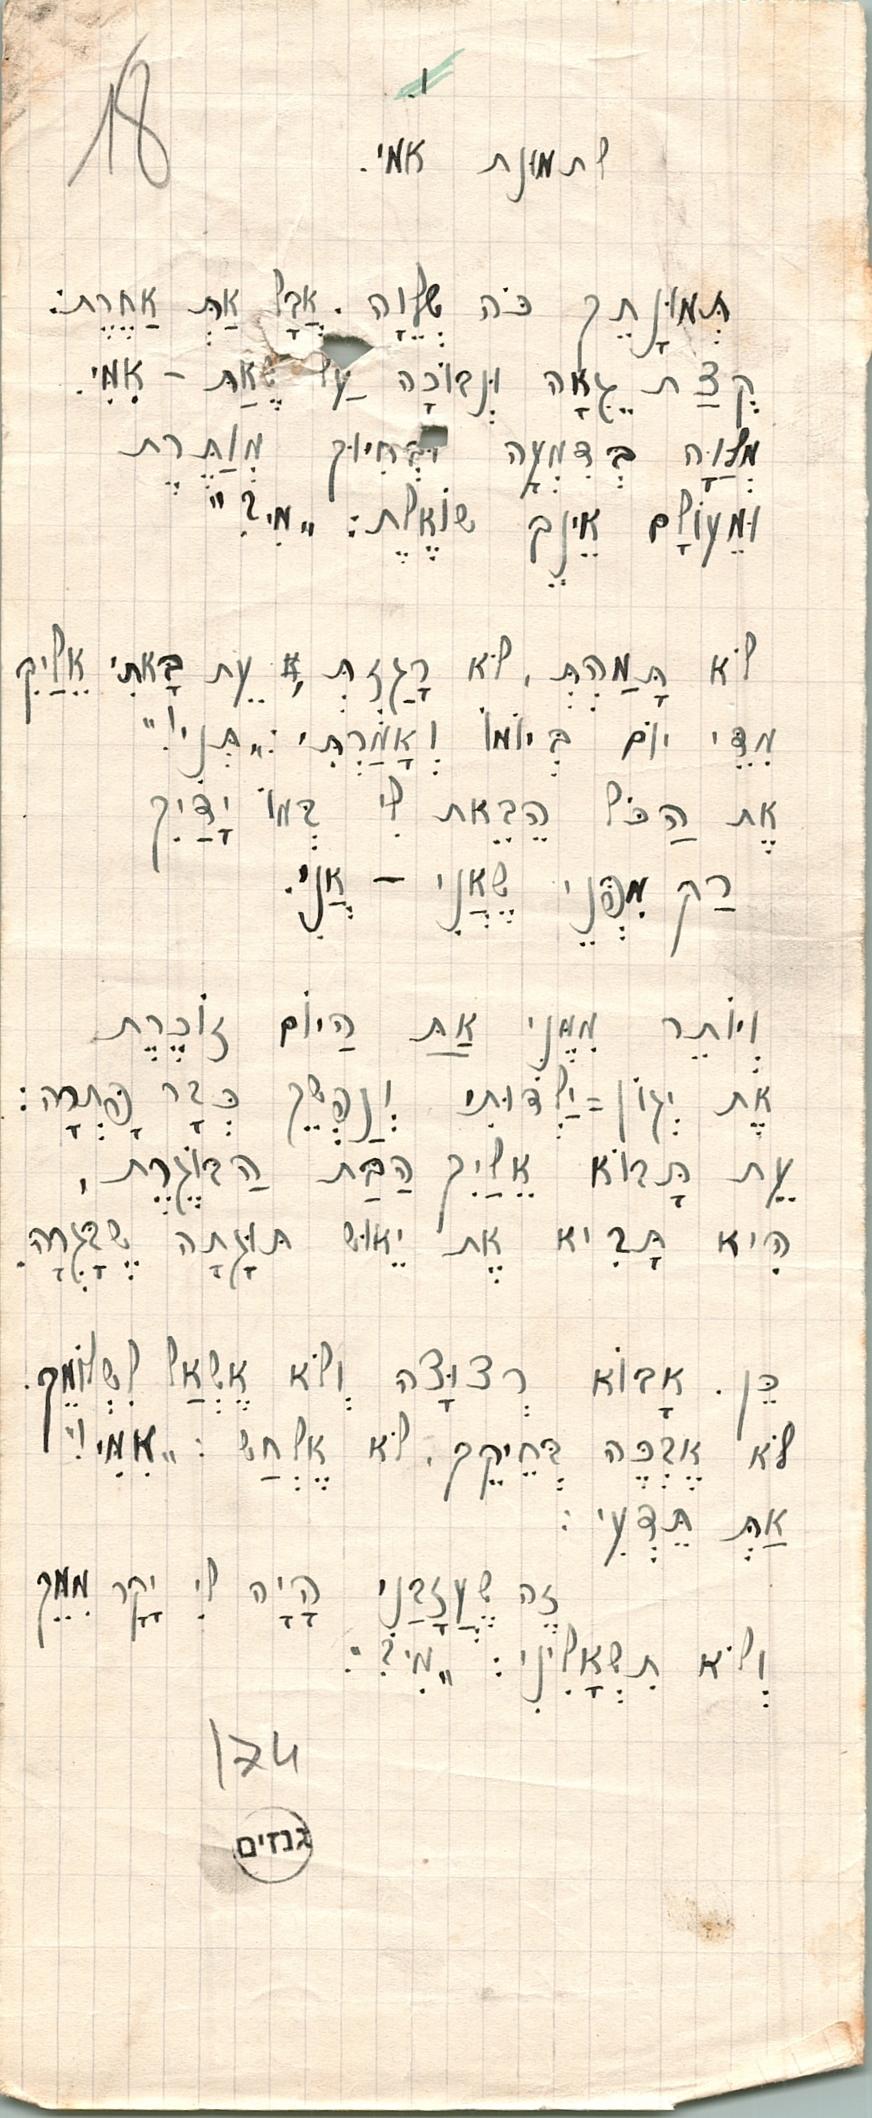 18
1.
לתמונת אמי.
תְּמוּנָתֵךְ כֹּה שְׁלֵוָה. אֲבָל אַתְּ אַחֶרֶת:
קְצַת גֵּאָה וּנְבוֹכָה עַל שֶׁאַתְּ – אִמִּי.
מְלַוָּה בְּדִמְעָה וּבְחִיּוּךְ מְוַתֶּרֶת
וּמֵעוֹלָם אֵינֵךְ שׁוֹאֶלֶת: „מִי?"
לֹא תָּמַהְתְּ, לֹא רָגַזְתְּ עֵת בָּאתִי אֵלַיִךְ
מִדֵּי יוֹם בְּיוֹמוֹ וְאָמַרְתִּי: „תְּנִי!"
אֶת הַכֹּל הֵבֵאת לִי בְּמוֹ יָדַיִךְ
רַק מִפְּנֵי שֶׁאֲנִי – אֲנִי.
וְיוֹתֵר מִמֶּנִּי אַתְּ הַיּוֹם זוֹכֶרֶת
אֶת יְגוֹן=יַלְדוּתִי וְנַפְשֵׁךְ כְּבָר פָּתְרָה:
עֵת תָּבוֹא אֵלַיִךְ הַבַּת הַבּוֹגֶרֶת,
הִיא תָּבִיא אֶת יֵאוּשׁ תּוּגָתָהּ שֶׁבָּגְרָה.
כֵּן. אָבוֹא רְצוּצָה וְלֹא אֶשְׁאַל לִשְׁלוֹמֵךְ.
לֹא אֶבְכֶּה בְּחֵיקֵךְ, לֹא אֶלְחַשׁ: „אִמִּי!"
אַתְּ תֵּדְעִי:
זֶה שֶׁעֲזָבַנִי הָיָה לִי יָקָר מִמֵּךְ
וְלֹא תִשְׁאָלִינִי: „מִי?".
174
גנזים